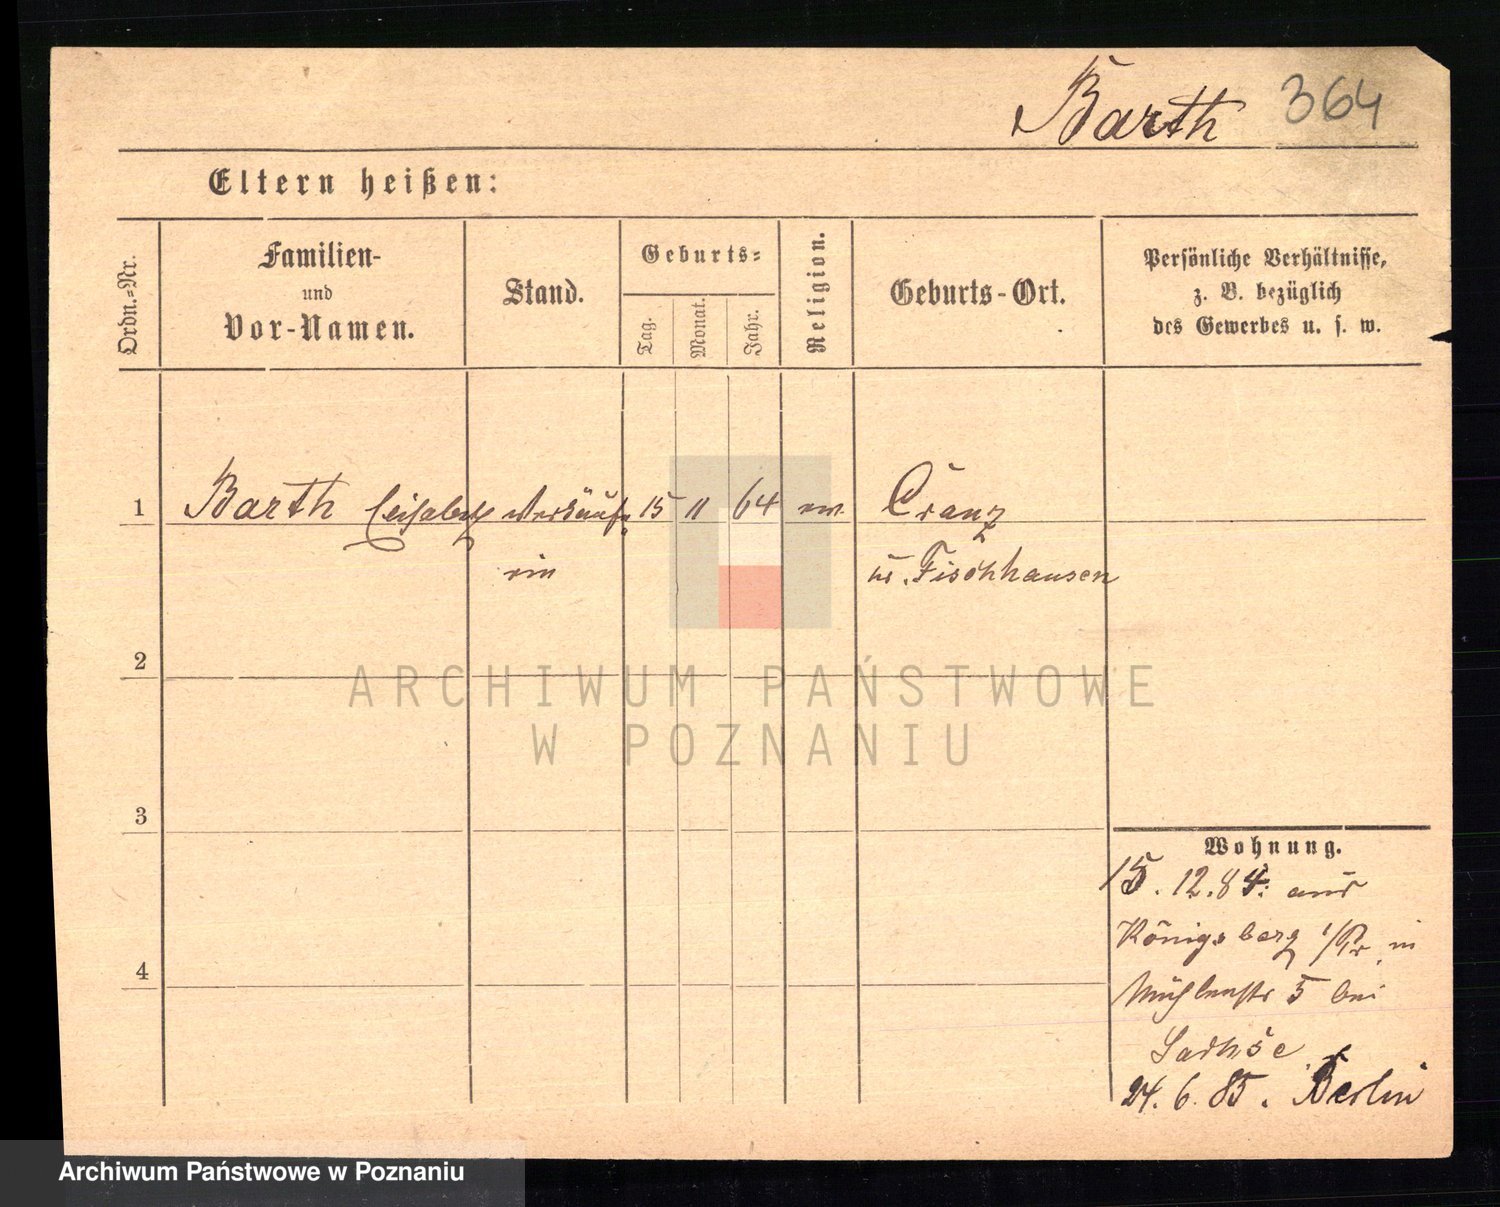 Barth 364
Eltern heißen:
Ordn.-Nr.
Familien-
und
Vor-Namen.
Stand.
Geburts-
Tag.
Monat.
Jahr.
Religion.
Geburts-Ort.
Persönliche Verhältnisse,
z. B. bezüglich
des Gewerbes u. s. w.
1 Barth Elisabeth Verkäufe 15 11 64 ev. Cranz
rin Fischhausen
2
3
4
Wohnung.
15. 12. 84. aus
Königsberg i/Pr. in
Mühlenstr 5 bei
24. 6. 85. Berlin
ARCHIWUM PAŃSTWOWE
W POZNANIU
Archiwum Państwowe w Poznaniu